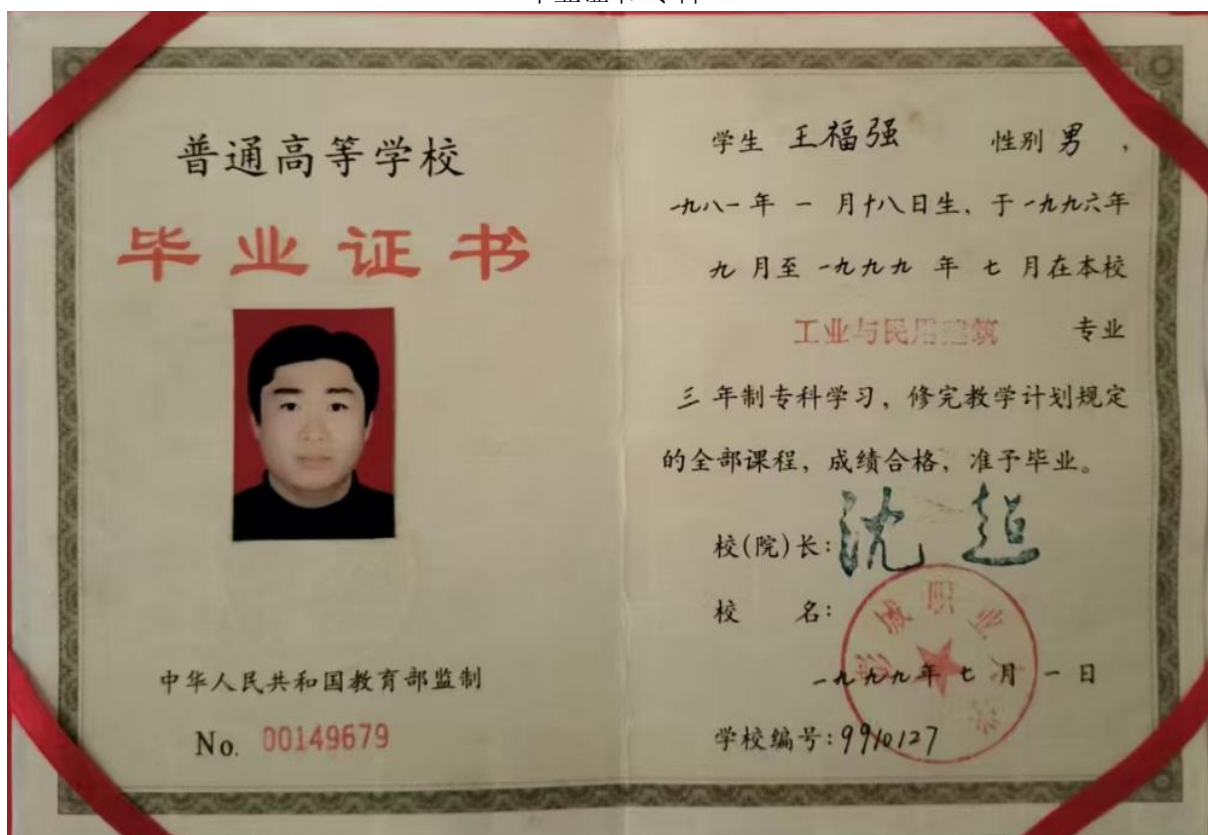 普通高等学校
毕业证书
中华人民共和国教育部监制
No. 00149679
学生 王福强 性别 男,
一九八一年 一 月十八日生、于一九九六年
九 月至 一九九九 年 七 月在本校
工业与民用建筑 专业
三 年制专科学习，修完教学计划规定
的全部课程，成绩合格，准予毕业。
校(院)长: 沈超
校 名:
彭城职业大学
一九九九年 七 月 一 日
学校编号: 9910127